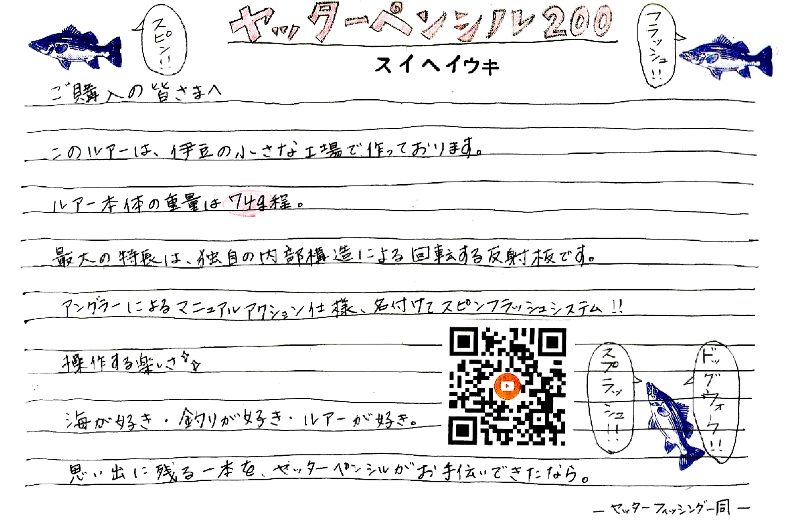 ヤッターペンシル200
スイヘイウキ
スピン!!
フラッシュ!!
ご購入の皆さまへ
このルアーは、伊豆の小さな工場で作っております。
ルアー本体の重量は74g程。
最大の特長は、独自の内部構造による回転する反射板です。
アングラーによるマニュアルアクション仕様、名付けてスピンフラッシュシステム!!
操作する楽しさ
海が好き・釣りが好き・ルアーが好き。
思い出に残る一本を、ヤッターペンシルがお手伝いできたなら。
スプラッシュ!!
ドッグウォーク!!
―ヤッターフィッシング一同―